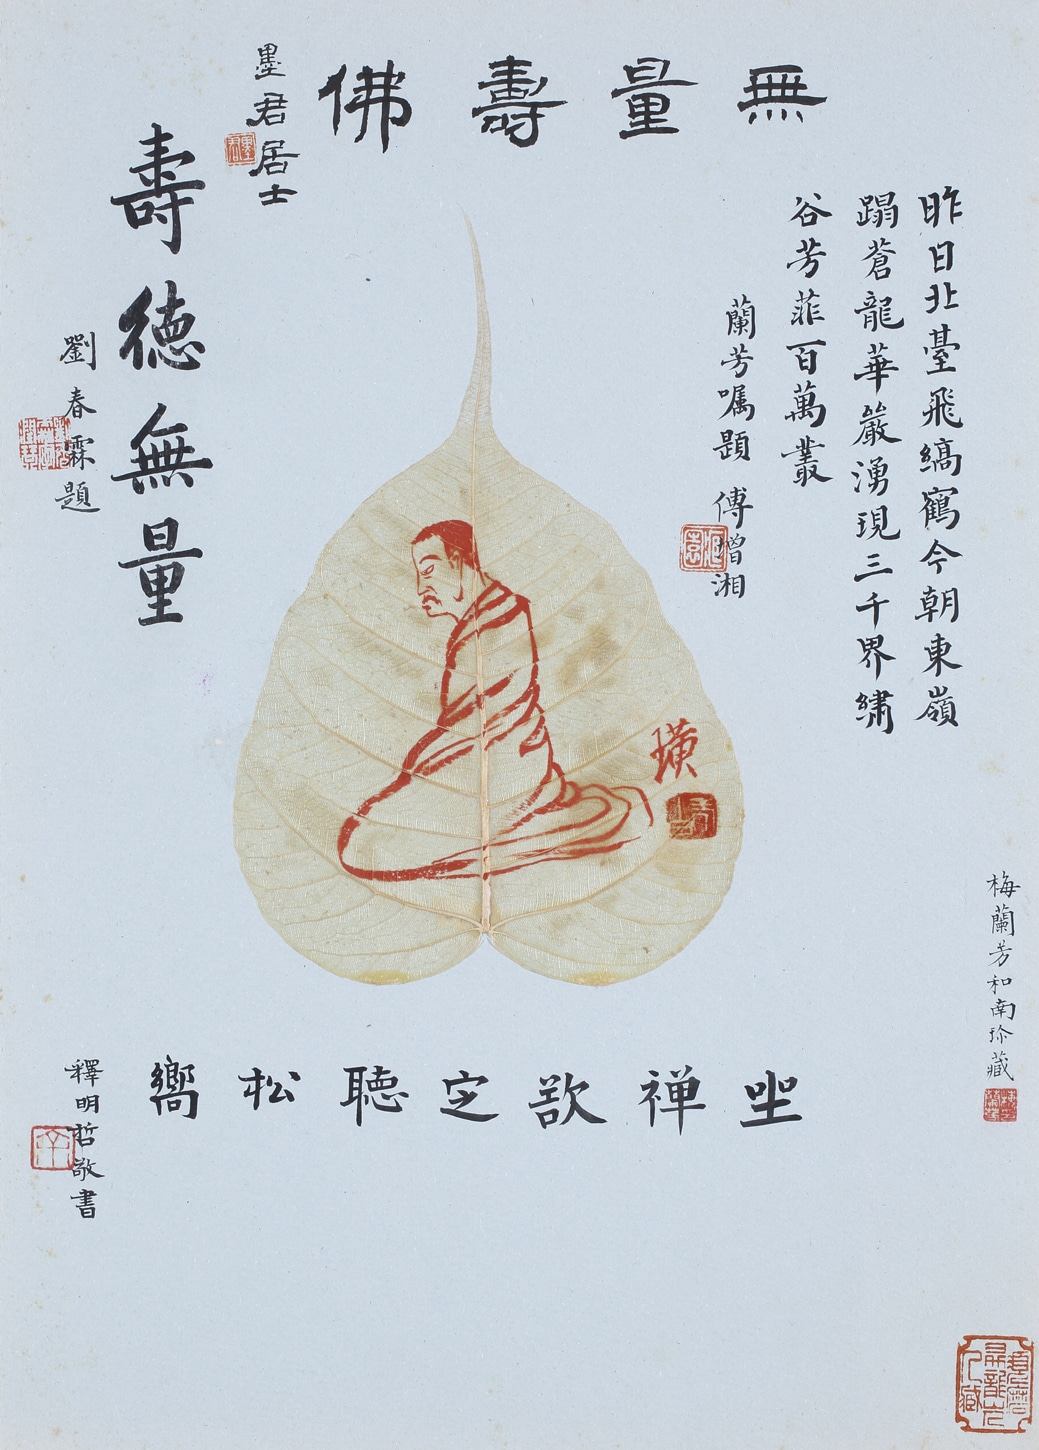 無量壽佛
墨君居士
昨日北臺飛縞鶴今朝東嶺
蹋蒼龍華嚴湧現三千界繡
谷芳菲百萬叢
蘭芳嘱題 傅增湘
壽德無量
劉春霖題
璜
坐禅欲定聽松嚮
釋明哲敬書
梅蘭芳和南珍藏